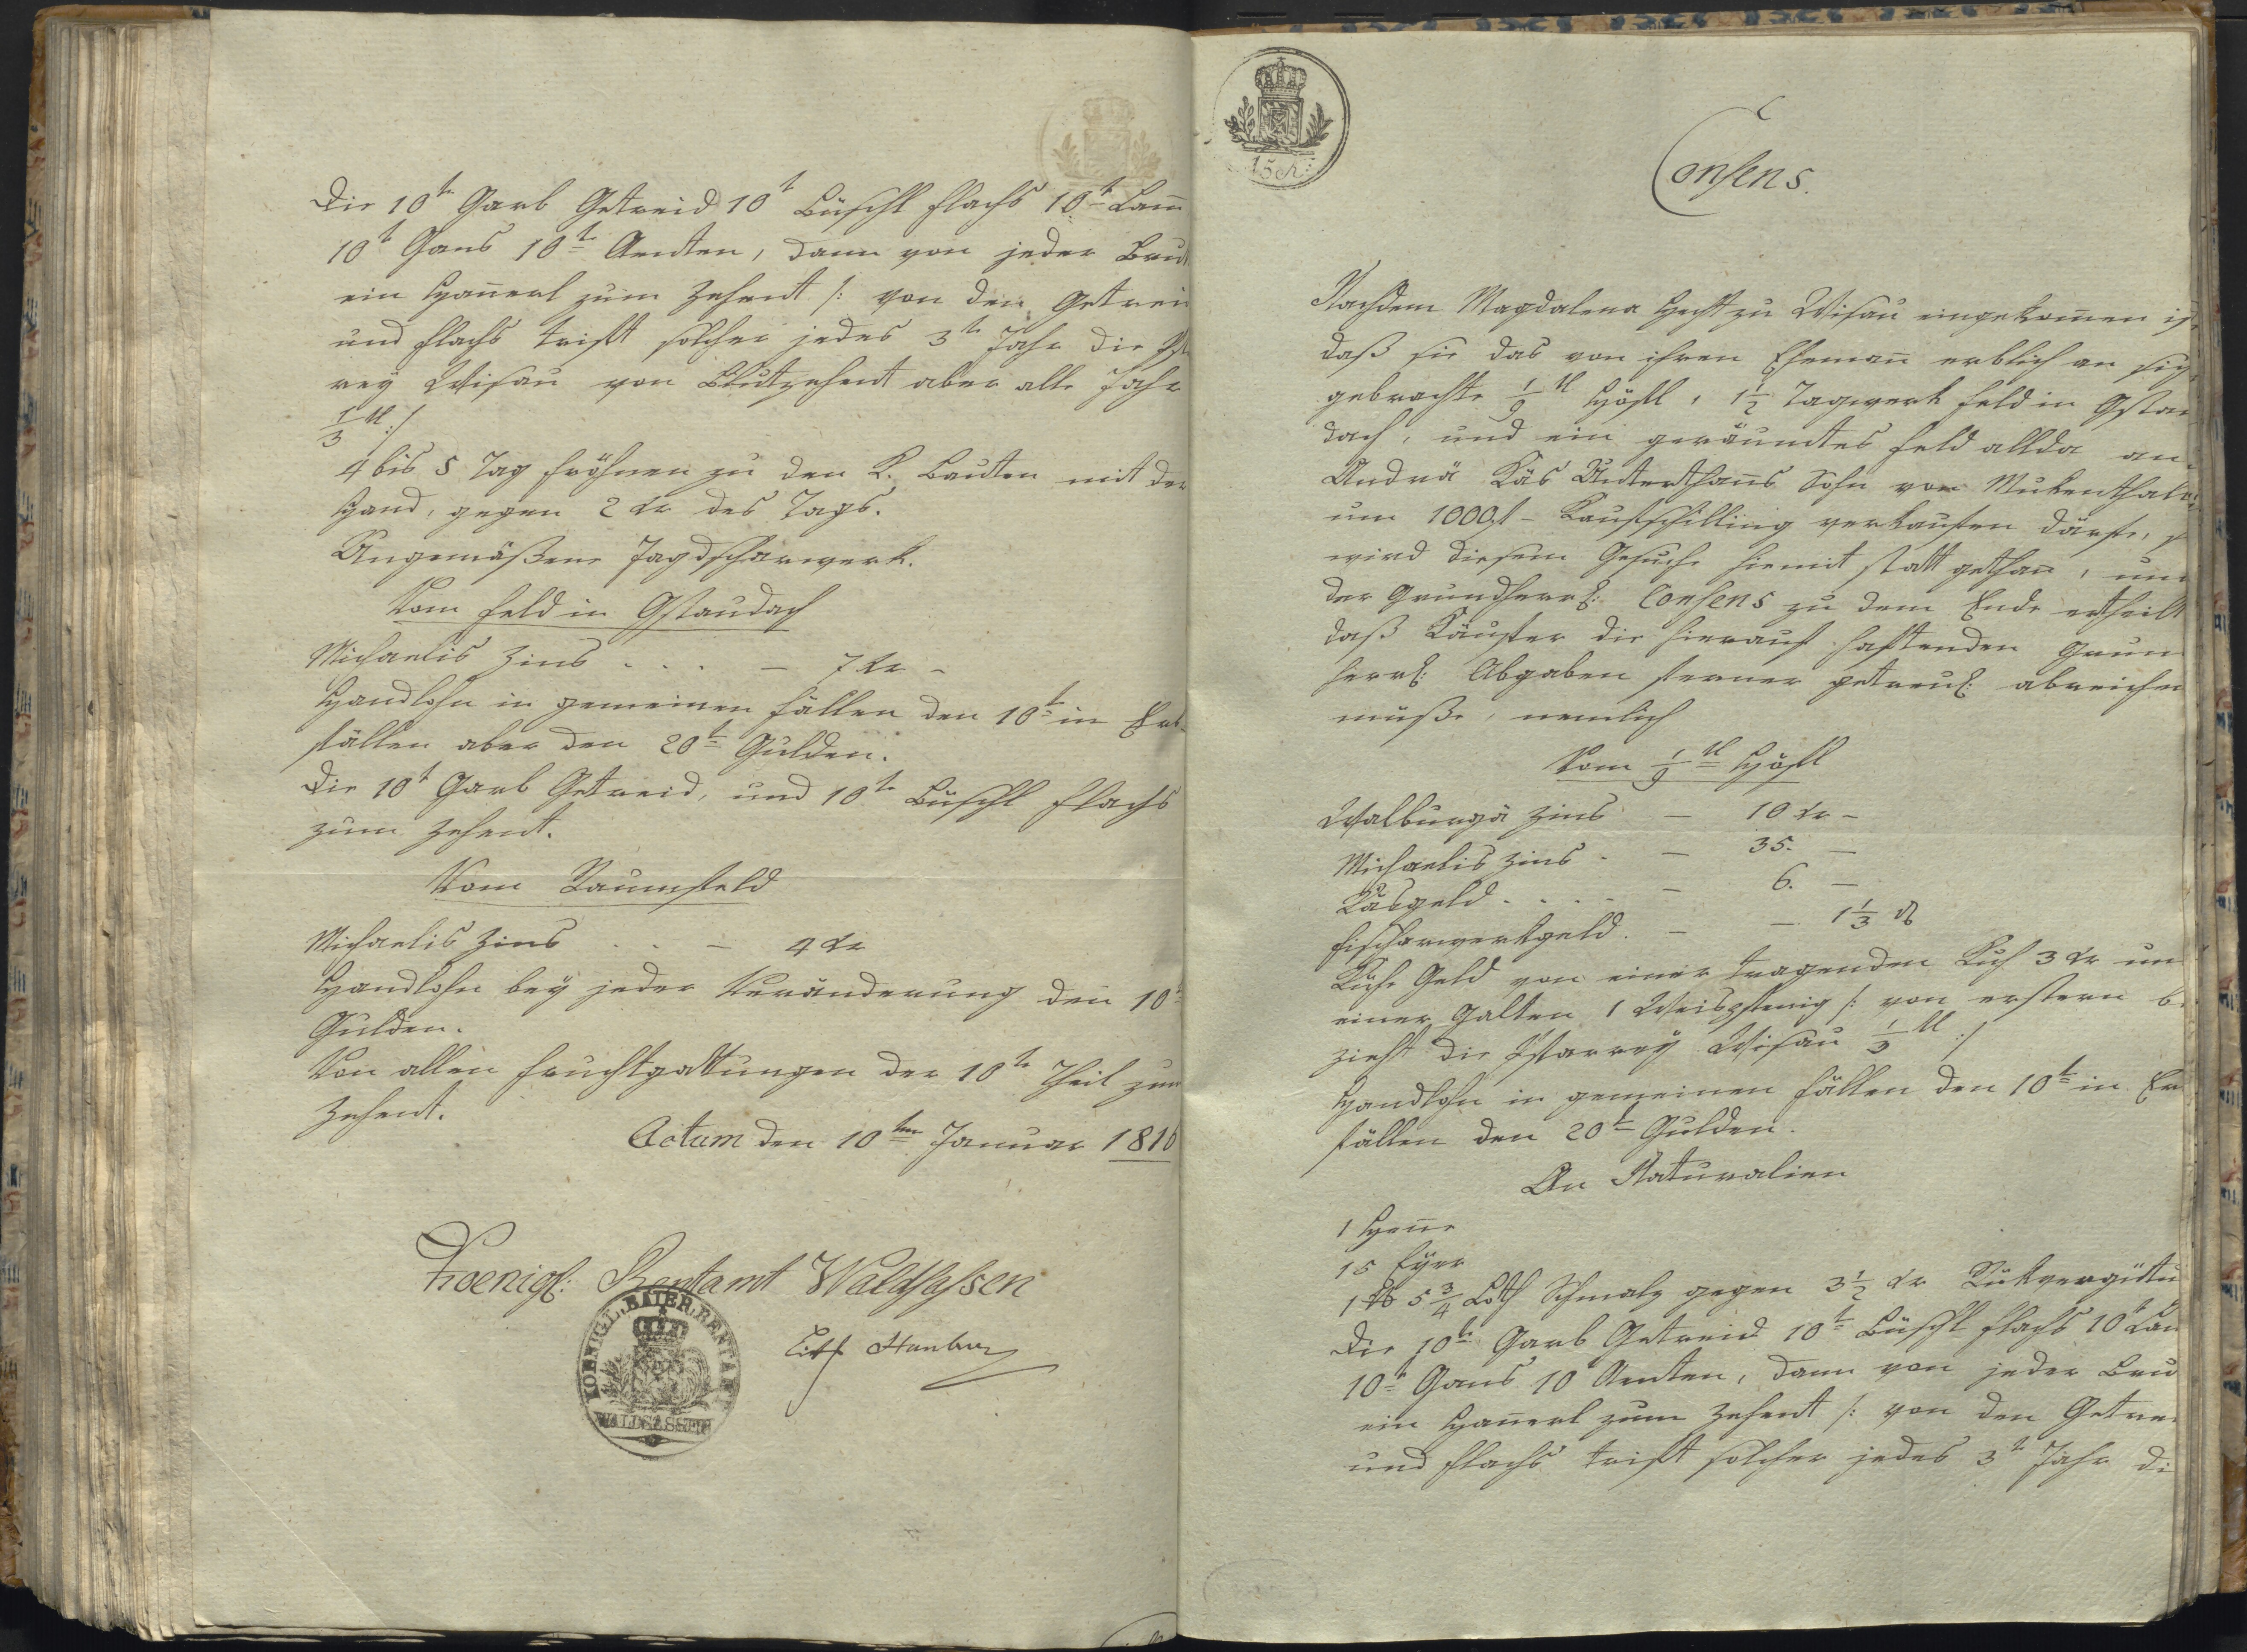 Die 10te Garb Getreid 10t Büschl Flachs 10te Lam̄
10t Gans 10te Aenten, dann von jeder Brut
ein Han̄erl zum Zehent /: von den Getrei
und Flachs trift solcher jedes 3te Jahr die Pfar
rey Wisau von Blutzehent aber alle Jahr
1/3tl :/
4 bis 5 Tag frohnen zu den K. Bauten mit der
Hand, gegen 2 kr des Tags.
Ungemäßene Jagdscharwerk.
Vom Feld in Gstaudach
Michaelis Zins . . . — 7 kr —
Handlohn in gemeinen Fällen den 10te in Erb
fällen aber den 20te Gulden.
Die 10t Garb Getreid, und 10te Büschl Flachs
zum Zehent.
Vom Raumfeld
Michaelis Zins . . — 4 kr
Handlohn bey jeder Veränderung den 10t
Gulden.
Von allen Fruchtgattungen der 10te Theil zum
Zehent.
Actum den 10ten Januar 1816
Koenigl: Rentamt Waldsassen
KOENIGL. BAIER. RENTAMT
WALDSASSEN
15 kr:
Consens.
Nachdem Magdalena Hecht zu Wisau eingekom̄en is
daß sie das von ihren Ehemañ erblich an sich
gebrachte 1/9tl Höfl, 1 1/2 Tagwerk Feld in Gstau
dach, und ein geräumtes Feld allda an
Andrä Käs Unterthans Sohn von Mukenthal
um 1000 fl – Kaufschilling verkaufen därfe, so
wird diesem Gesuche hiemit statt gethan, und
der Grundherrl: Consens zu dem Ende ertheilt
daß Käufer die hierauf haftenden Grun
herrl: Abgaben ferner getreul: abreichen
müße, nemlich
Vom 1/9tl Höfl
Walburgä Zins — 10 kr —
Michaelis Zins . — 35. —
Käsgeld . . . . — 6. —
Fischarwerkgeld . — — 1 1/3 ₰
Kuhe Geld von einer tragenden Kuh 3 kr un
einer Galten 1 Weispfenig /: von erstern be
zieht die Pfarrey Wisau 1/3tl :/
Handlohn in gemeinen Fällen den 10te in Er
fällen den 20te Gulden.
An Naturalien
1 Hen̄e
15 Eyer
1 ℔ 5 3/4 Loth Schmalz gegen 3 1/2 kr Rükvergütu
Die 10te Garb Getreid 10te Büschl Flachs 10t Lam
10te Gans 10t Aenten, dann von jeder Bru
ein Han̄erl zum Zehent /: von den Getrei
und Flachs trift solcher jedes 3te Jahr di